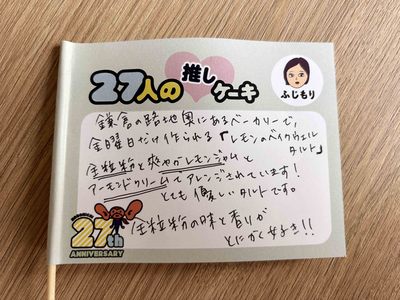 27人の推しケーキ
ふじもり
鎌倉の路地奥にあるベーカリーで、
金曜日だけ作られる「レモンのベイクウェル
タルト」
全粒粉と爽やかレモンジャムと
アーモンドクリームでアレンジされています!
とても優しいタルトです。
全粒粉の味と香りが
とにかく好き!!
27th
ANNIVERSARY